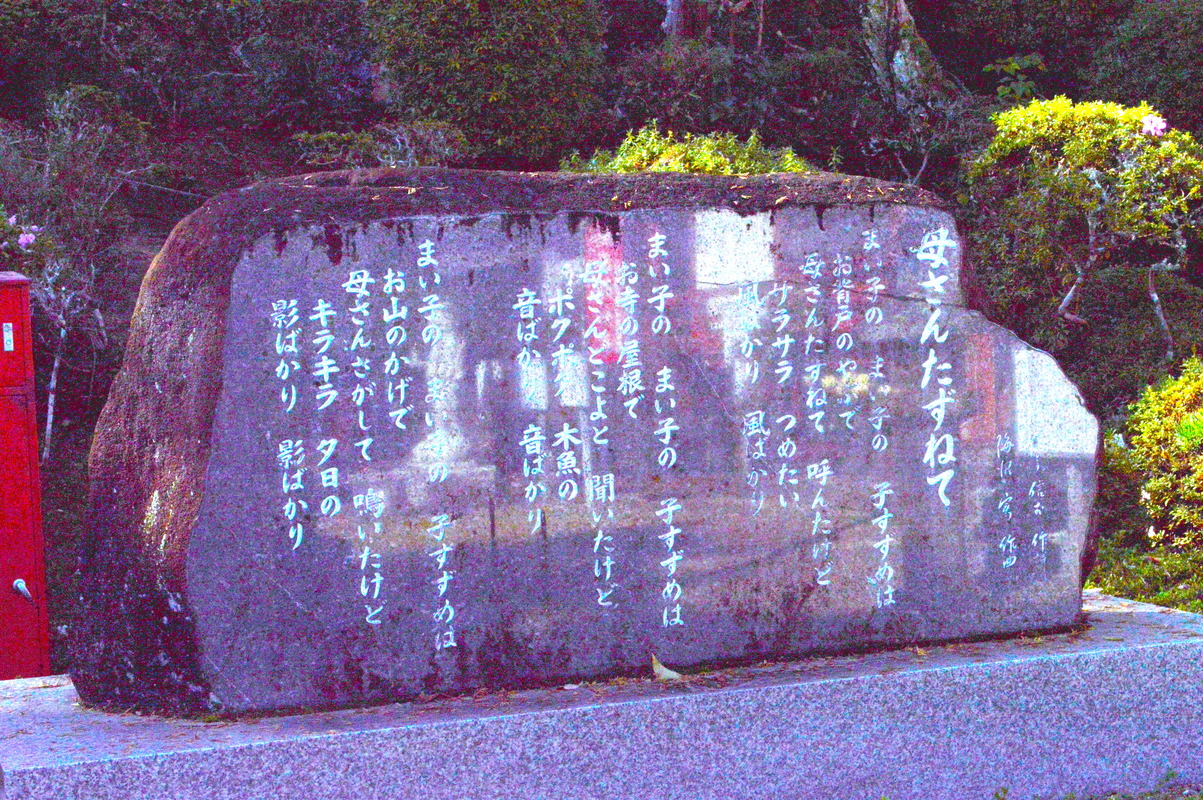 母さんたずねて
作詞
海沼 実 作曲
まい子の まい子の 子すずめは
お背戸のやぶで
母さんたずねて 呼んだけど
サラサラ つめたい
風ばかり 風ばかり
まい子の まい子の 子すずめは
お寺の屋根で
母さんどこよと 聞いたけど
ポクポク 木魚の
音ばかり 音ばかり
まい子の まい子の 子すずめは
お山のかげで
母さんさがして 鳴いたけど
キラキラ 夕日の
影ばかり 影ばかり